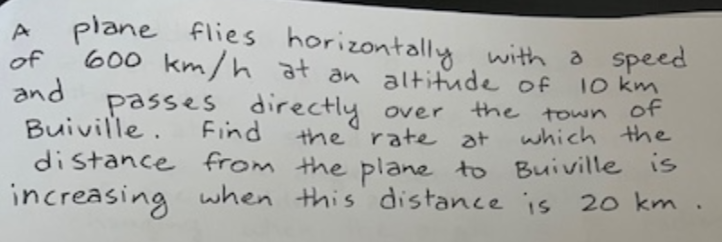 A plane flies horizontally with a speed
of 600 km/h at an altitude of 10 km
and passes directly over the town of
Buiville. Find the rate at which the
distance from the plane to Buiville is
increasing when this distance is 20 km.